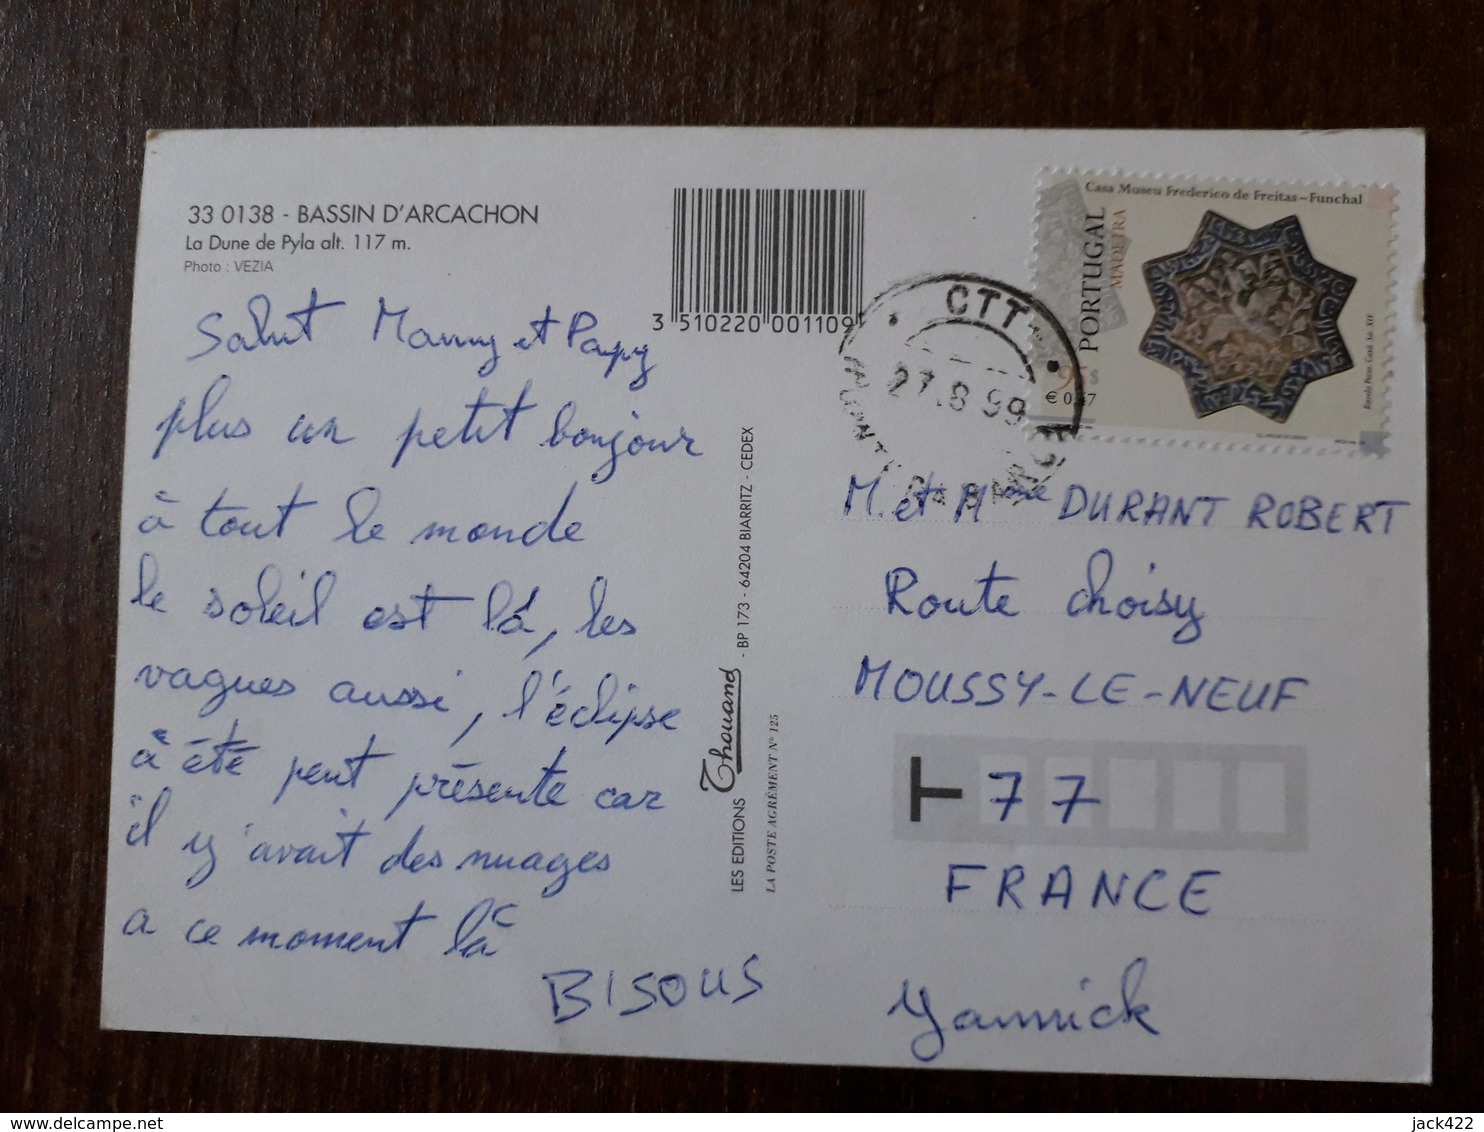 33 0138 - BASSIN D'ARCACHON
La Dune de Pyla alt. 117 m.
Photo : VEZIA
3 510220 001109
Salut Mamy et Papy
plus un petit bonjour
à tout le monde
le soleil est là, les
vagues aussi, l'éclipse
à été peut présente car
il y avait des nuages
a ce moment là
BISOUS
LES EDITIONS Thouand - BP 173 - 64204 BIARRITZ - CEDEX
LA POSTE AGRÉMENT N° 125
Casa Museu Frederico de Freitas - Funchal
PORTUGAL
MADEIRA
€ 0,47
CTT
27.8 99
M. et Mme DURANT ROBERT
Route choisy
MOUSSY-LE-NEUF
77
FRANCE
Yannick
delcampe.net
jack422